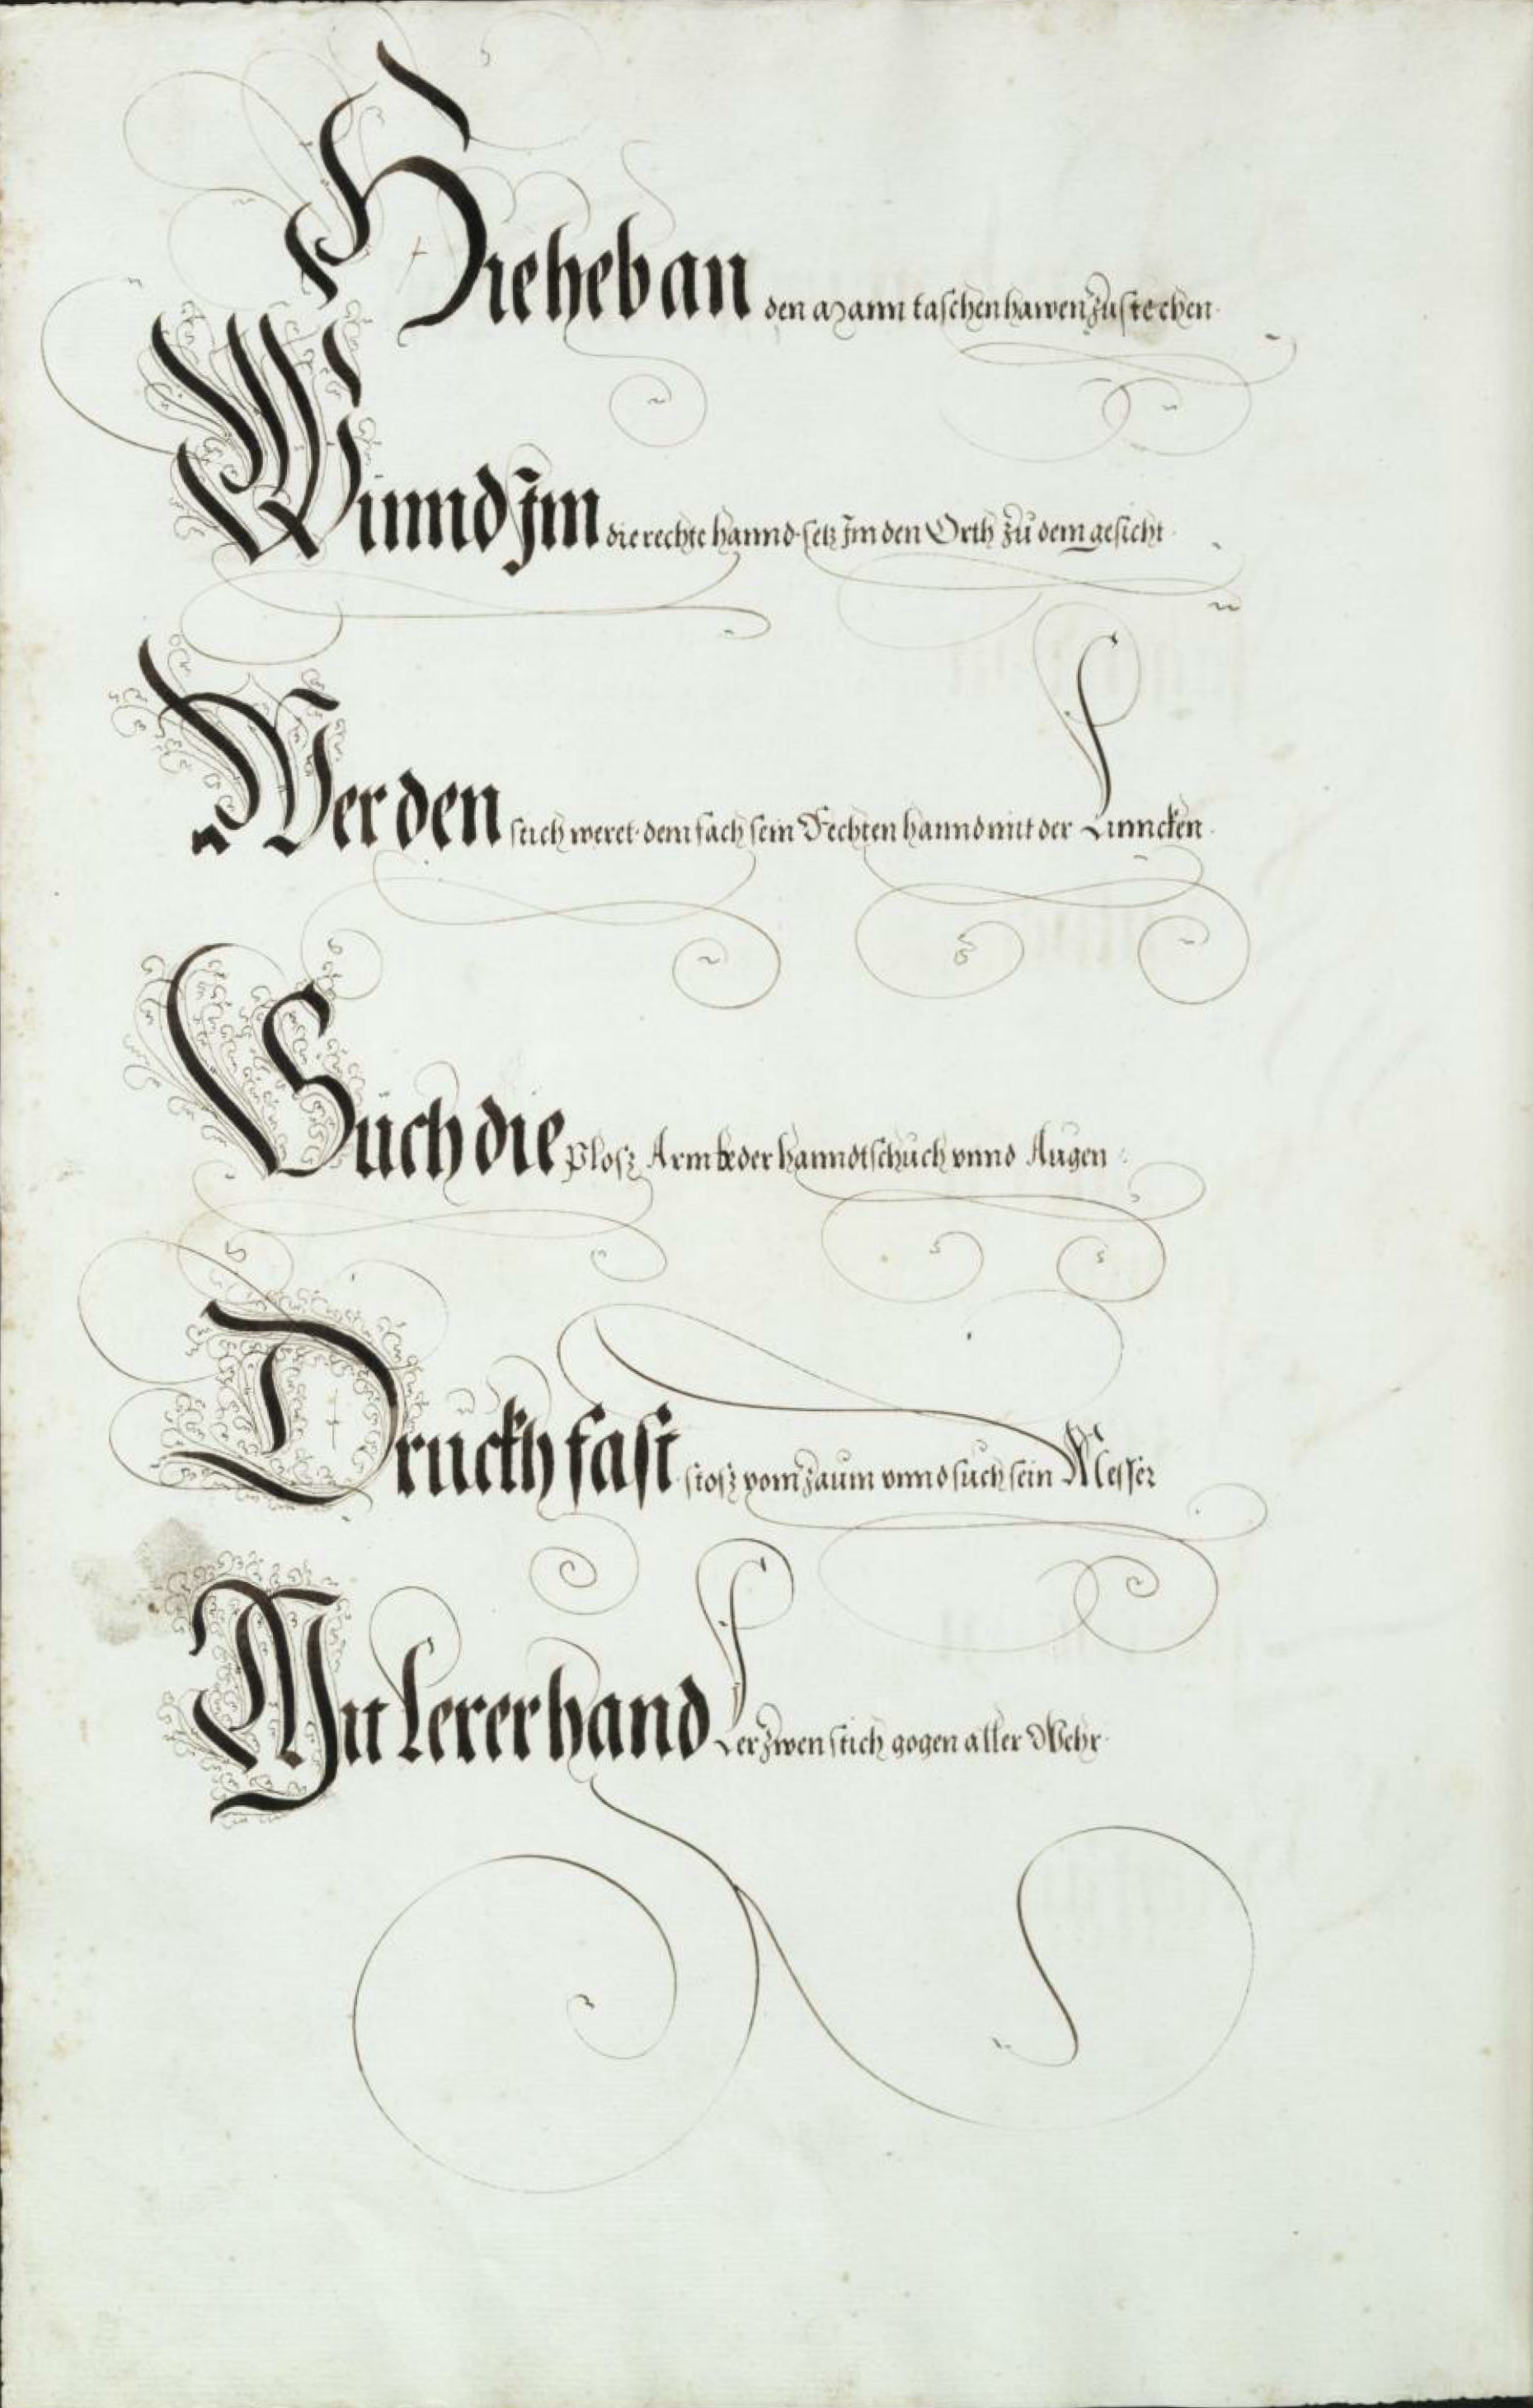 Hie heb an den Mann taschenhawen zu stechen·
Winnd Im die rechte hannd· setz Im den Orth zu dem gesicht·
Wer den stich weret· dem fach sein Fechten hannd mit der Linncken·
Such die plosz Arm leder hanndtschuch vnnd Augen
Druckh fast stosz vom zaum vnnd such sein Messer
Mit lerer hand Ler zwen stich gogen aller Wehr·